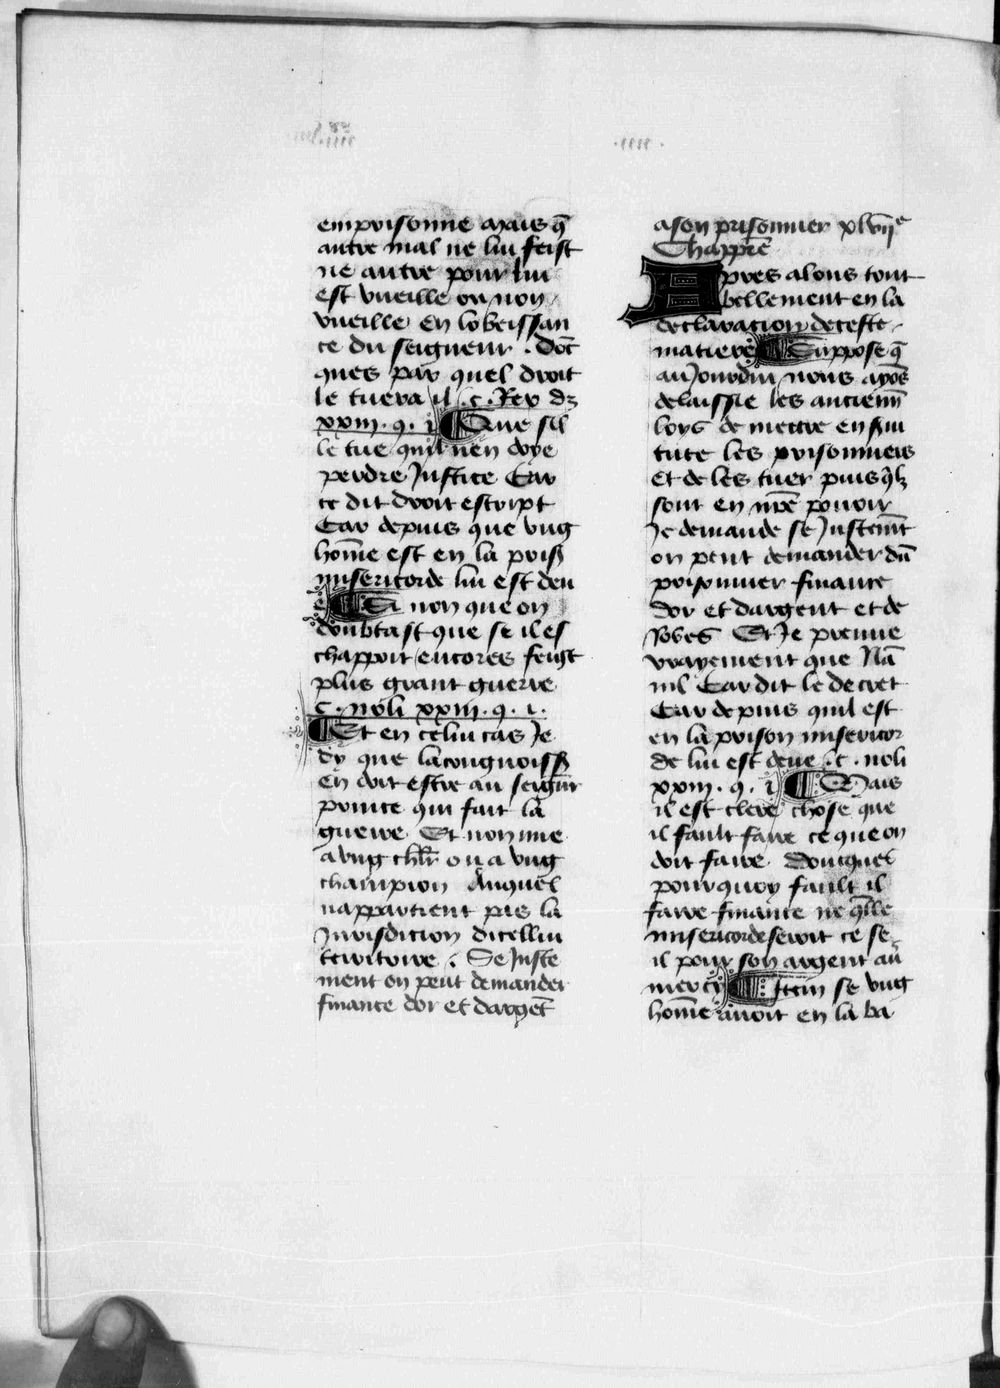 emprisonne mais q̄
autre mal ne lui feist
ne autre pour lui
est vueille ou non
vueille en lobeissan
ce du seigneur . dōc
ques par quel droit
le tuera il . c . Rex dz
xxiii . q . i ¶ Que sil
le tue quil nen doye
perdre Justice Car
ce dit droit escript
Car depuis que vng
hōme est en la pris
misericorde lui est deu
e ¶ Si non que on
doubtast que se il es
chappoit encores feist
plus grant guerre
c . noli xxiii . q . i .
¶ Et en celui cas Je
dy que la congnoiss
en doit estre au seigūr
prince qui fait la
guerre Et non mie
a vng chlr̄ ou a vng
champion Auquel
nappartient pas la
Jurisdicion dicellui
territoire . Se Juste
ment on peut demander
finance dor et dargēt
a son prisonnier xlvii e
Chappr̄e
Apres alons tout
bellement en la
declaracion de ceste
matiere ¶ Suppose q̄
au Jourdui nous ayōs
delaissie les anciēn
loys de mettre en ser
tute les prisonniers
et de les tuer puis q̄lz
sont en nr̄e pouoir
Je demande se Justemēt
on peut demander dū
prisonnier finance
dor et dargent et de
robes Et Je preuue
vrayement que Nā
nil Car dit le decret
Car depuis quil est
en la prison misericor
de lui est deue . c . noli
xxiii . q . i ¶ Mais
il est clere chose que
il fault faire ce que on
doit faire Doncques
pourquoy fault il
faire finance ne q̄lle
misericorde seroit ce se
il pour son argent au
mercy ¶ Item se vng
hōme auoit en la ba